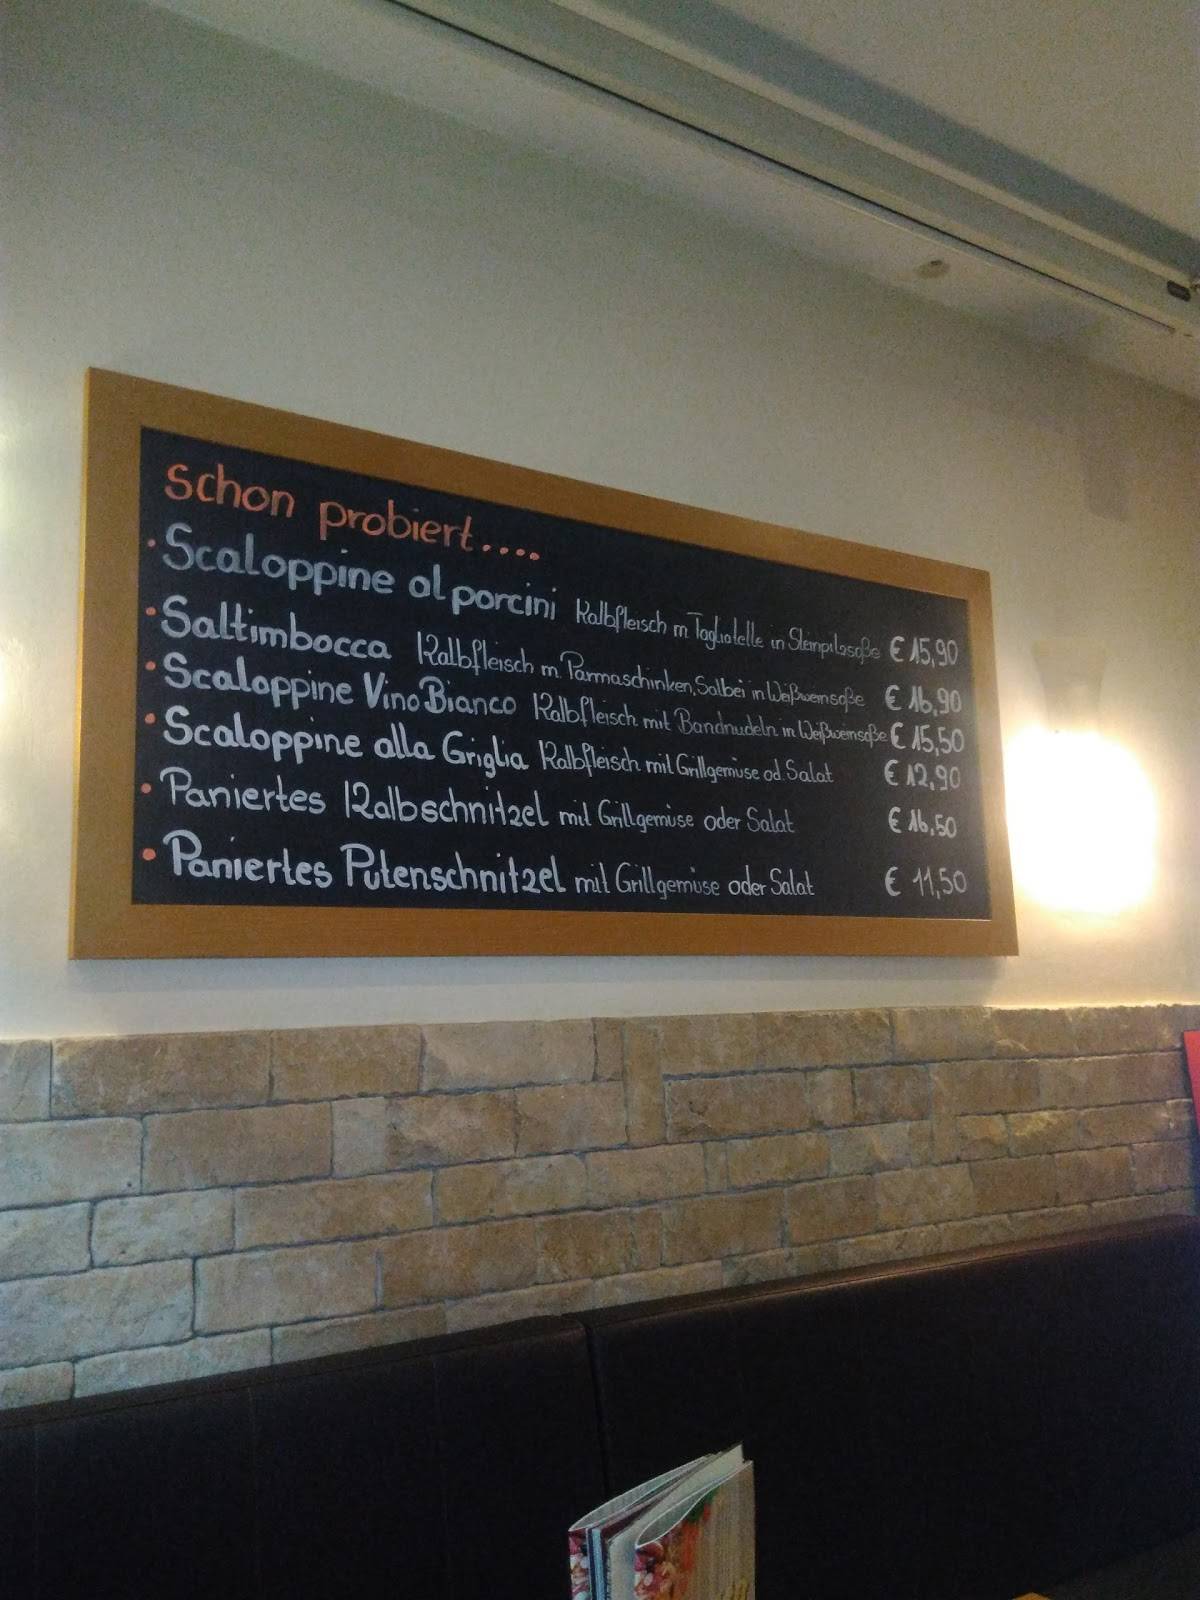 schon probiert....
· Scaloppine al porcini Kalbfleisch m Tagliatelle in Steinpilzsoße € 15,90
· Saltimbocca Kalbfleisch m Parmaschinken, Salbei in Weißweinsoße € 16,90
· Scaloppine Vino Bianco Kalbfleisch mit Bandnudeln in Weißweinsoße € 15,50
· Scaloppine alla Griglia Kalbfleisch mit Grillgemüse od Salat € 12,90
· Paniertes Kalbschnitzel mit Grillgemüse oder Salat € 16,50
· Paniertes Putenschnitzel mit Grillgemüse oder Salat € 11,50